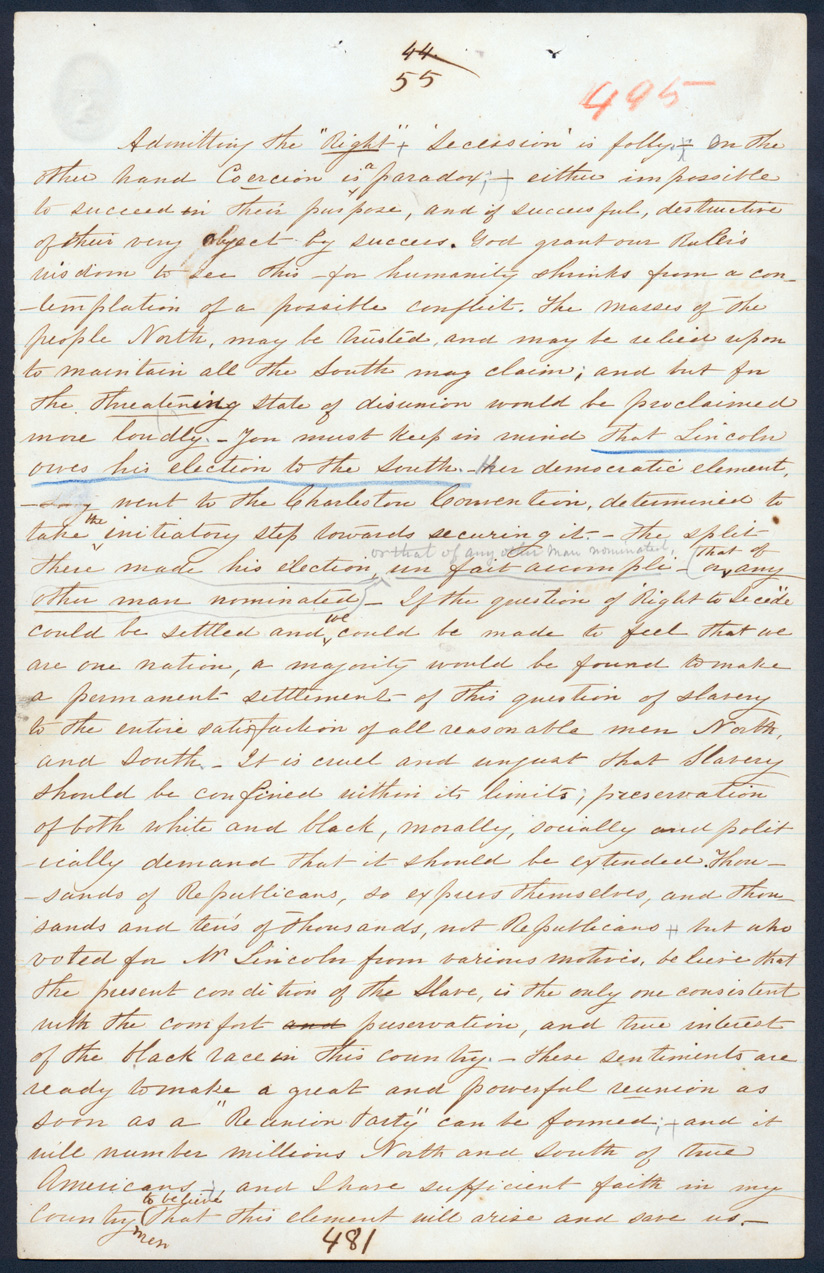 44
55
495
Admitting the "Right" + 'Secession' is folly; - On the
other hand Coercion is a paradox; + either impossible
to succeed in their purpose, and if successful, destructive
of their very object by success. God grant our Rulers
wisdom to see this - for humanity shrinks from a con-
-templation of a possible conflict. The masses of the
people North, may be trusted, and may be relied upon
to maintain all the South may claim; and but for
the threatening state of disunion would be proclaimed
more loudly. - You must keep in mind that Lincoln
owes his election to the South. - Her democratic element,
went to the Charleston Convention, determined to
take the initiatory step towards securing it. - The split
or that of any other man nominated,
there made his election, un fait accompli - (or that of any
other man nominated - If the question of 'Right to Secede'
could be settled and we could be made to feel that we
are one nation, a majority would be found to make
a permanent settlement of this question of slavery
to the entire satisfaction of all reasonable men North,
and South. - It is cruel and unjust that Slavery
should be confined within its limits; preservation
of both white and black, morally, socially and polit
-ically demand that it should be extended. Thou-
-sands of Republicans, so express themselves, and thou-
sands and ten's of thousands, not Republicans + but who
voted for Mr Lincoln from various motives, believe that
the present condition of the Slave, is the only one consistent
with the comfort and preservation, and true interest
of the black race in this country. - These sentiments are
ready to make a great and powerful reunion as
soon as a "Reunion Party" can be formed; + and it
will number millions North and South of true
Americans - and I have sufficient faith in my
to believe
Country (that this element will arise and save us. -
men
481